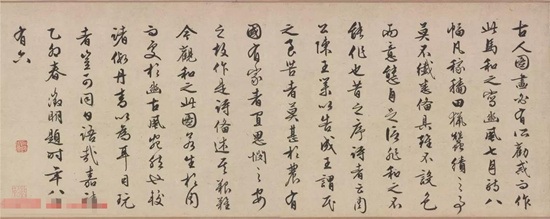 古人圖畫必有所勸戒而作
此馬和之寫豳風七月詩八
幅凡稼穡田獵蠶績之事
莫不纖悉備具雖不設色
而意態自足信非和之不
能作也昔之序詩者云周
公陳王業以告成王謂民
之良苦者莫甚於農有
國有家者宜思憫之安
之故作是詩備述其艱難
今觀和之此圖若生於周
而處於豳古風宛然此較
諸 丹青以為耳目玩
者豈可同日語哉嘉靖
乙卯春徵明題時年八
有六